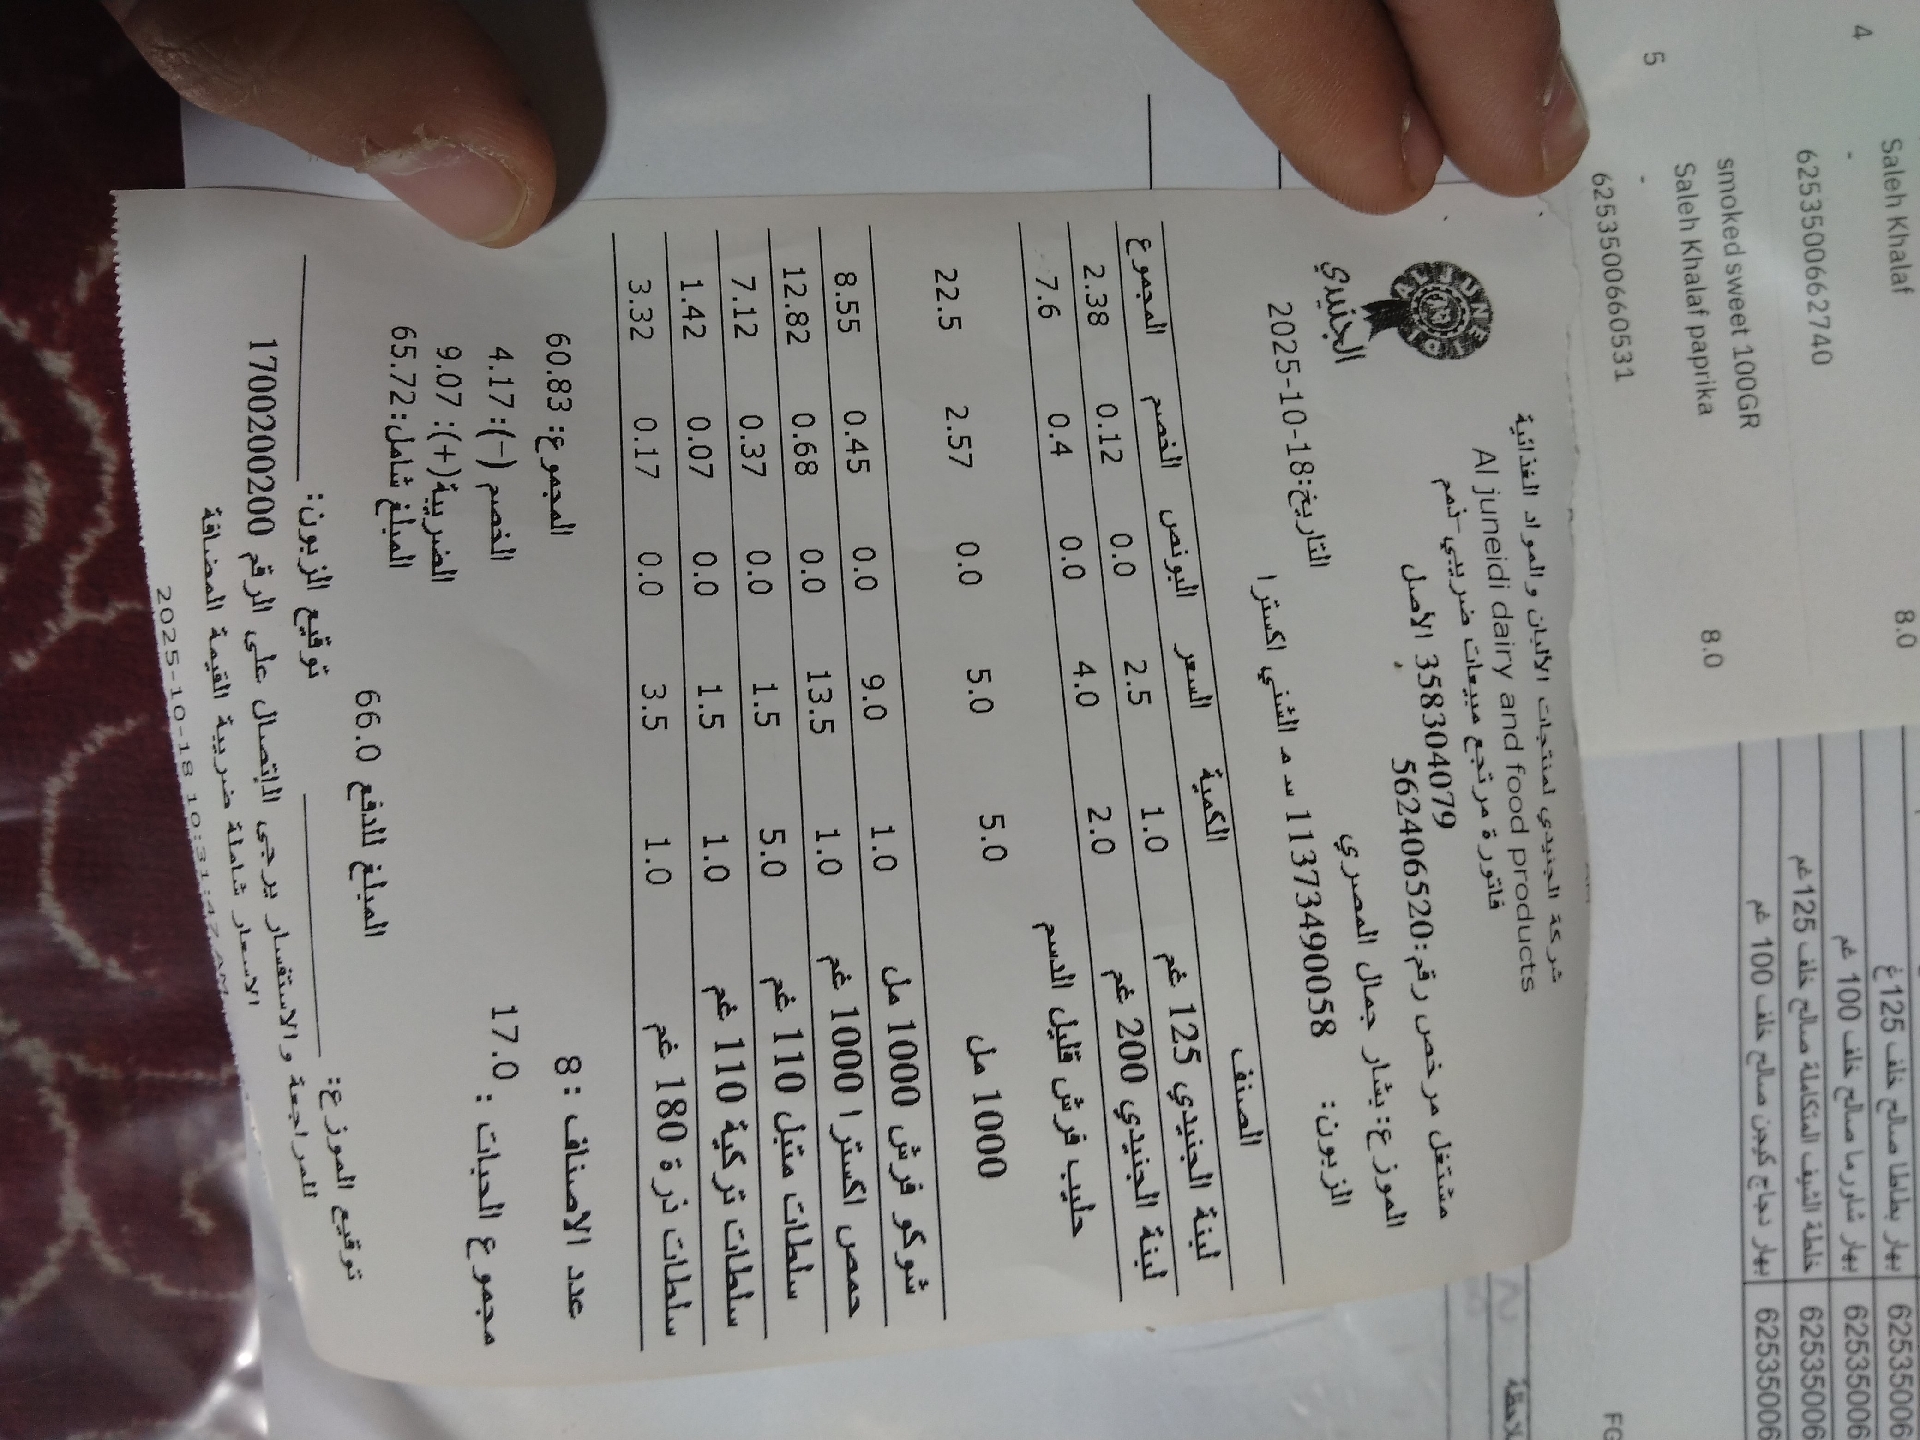 شركة الجنيدي لمنتجات الألبان و المواد الغذائية
Al juneidi dairy and food products
فاتورة مرتجع مبيعات ضريبي-ذمم
358304079 الأصل
مشتغل مرخص رقم:562406520
الموزع: بشار جمال المصري
الجنيدي
التاريخ:2025-10-18
الزبون: 1137349058 س م الشني اكسترا
الصنف الكمية السعر البونص الخصم المجموع
لبنة الجنيدي 125 غم 1.0 2.5 0.0 0.12 2.38
لبنة الجنيدي 200 غم 2.0 4.0 0.0 0.4 7.6
حليب فرش قليل الدسم
1000 مل 5.0 5.0 0.0 2.57 22.5
شوكو فرش 1000 مل 1.0 9.0 0.0 0.45 8.55
حمص اكسترا 1000 غم 1.0 13.5 0.0 0.68 12.82
سلطات متبل 110 غم 5.0 1.5 0.0 0.37 7.12
سلطات تركية 110 غم 1.0 1.5 0.0 0.07 1.42
سلطات ذرة 180 غم 1.0 3.5 0.0 0.17 3.32
عدد الاصناف : 8 المجموع: 60.83
مجموع الحبات : 17.0 الخصم (-): 4.17
الضريبة(+): 9.07
المبلغ شامل: 65.72
المبلغ للدفع 66.0
توقيع الموزع: توقيع الزبون:
للمراجعة و الاستفسار يرجى الاتصال على الرقم 1700200200
الاسعار شاملة ضريبة القيمة المضافة
2025-10-18
4
Saleh Khalaf
8.0
-
6253500662740
smoked sweet 100GR
5
Saleh Khalaf paprika
8.0
-
6253500660531
بهار بطاطا صالح خلف 125غ 62535006
بهار شاورما صالح خلف 100 غم 62535006
خلطة الشيف المتكاملة صالح خلف 125غم 62535006
بهار دجاج كيجن صالح خلف 100 غم 62535006
FG